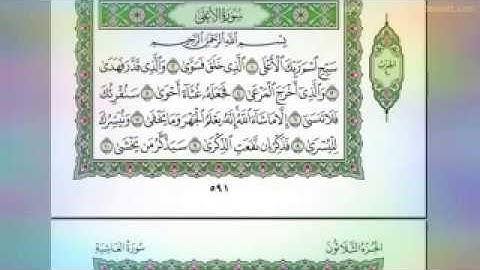 سُورَةُ الأَعْلَى
بِسْمِ اللَّهِ الرَّحْمَٰنِ الرَّحِيمِ
سَبِّحِ اسْمَ رَبِّكَ الْأَعْلَى ١ الَّذِي خَلَقَ فَسَوَّىٰ ٢ وَالَّذِي قَدَّرَ فَهَدَىٰ
٣ وَالَّذِي أَخْرَجَ الْمَرْعَىٰ ٤ فَجَعَلَهُ غُثَاءً أَحْوَىٰ ٥ سَنُقْرِئُكَ
فَلَا تَنسَىٰ ٦ إِلَّا مَا شَاءَ اللَّهُ إِنَّهُ يَعْلَمُ الْجَهْرَ وَمَا يَخْفَىٰ ٧ وَنُيَسِّرُكَ
لِلْيُسْرَىٰ ٨ فَذَكِّرْ إِن نَّفَعَتِ الذِّكْرَىٰ ٩ سَيَذَّكَّرُ مَن يَخْشَىٰ ١٠
٥٩١
الجزءُ الثَّلَاثُونَ
سُورَةُ الغَاشِيَةِ